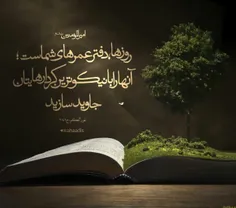 امیرالمومنین
روزها، دفتر عمرهای شماست؛
آنها را با نیکوترین کردارهایتان
جاوید سازید